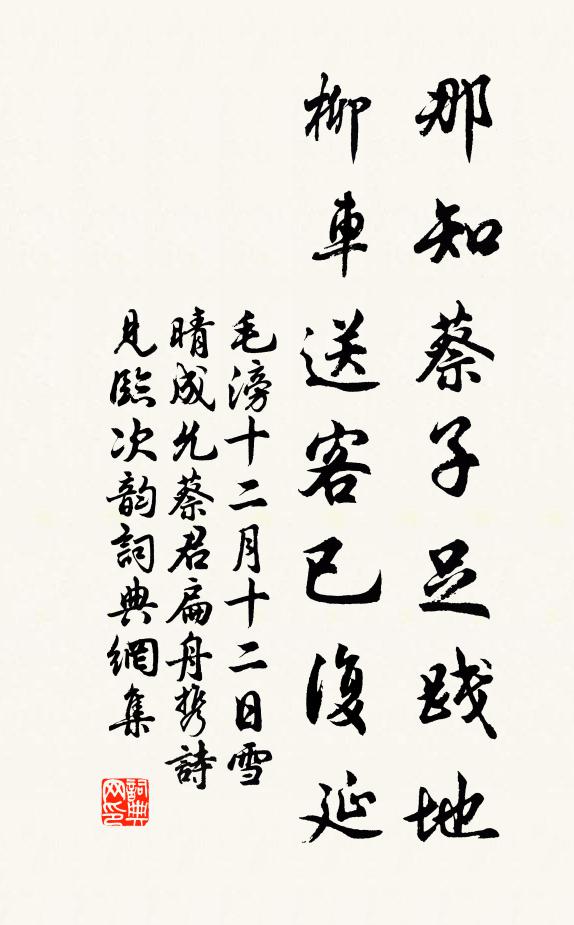 那知蔡子足踐地
柳車送客已復延
毛滂十二月十二日雪
晴成允蔡君扁舟携詩
見臨次韵詞典網集
詞典网印